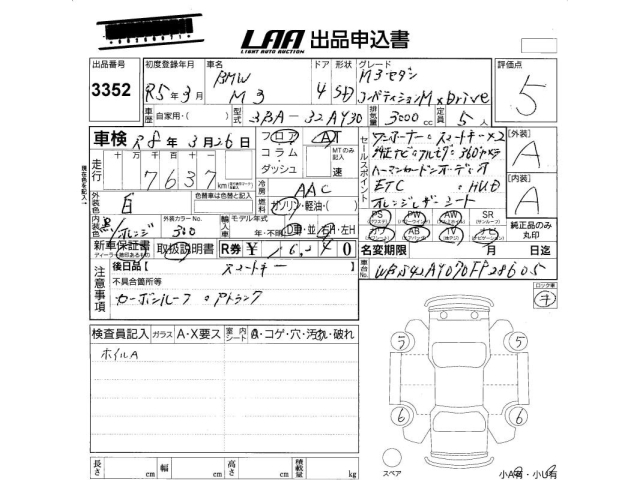 LAA 出品申込書
LIGHT AUTO AUCTION
出品番号 初度登録年月 車名 ドア 形状 グレード 評価点
3352 R5年3月 BMW M3 4 SD M3セダン コンペティションM xDrive 5
車歴 自家用・( ) 型式 3BA-32AY30 排気量 3000 cc 定員 5人
車検 R8年3月26日 フロア AT セールスポイント ワンオーナー。スマートキー×2 【外装】
コラム MTのみ記入 純正ナビ。フルセグ。360°カメラ A
走行 十万 万 千 百 十 一 ダッシュ 速 ハーマンカードンオーディオ
7637 km 冷房 AAC ETC 。HUD 【内装】
現在色を記入→
外装色 白 色替車は色替と記入 燃料 ガソリン・軽油・( ) オレンジレザーシート A
内装色 黒/オレンジ 外装カラーNo. 300 輸入車 モデル年式 年・不明 D車・並 右H・左H PS PW AW SR 純正品のみ丸印
AB TV ナビ
新車保証書 取扱説明書 R券 ¥ 0 名変期限 月 日迄
ディーラー捺印あるもの
注意事項 後日品【 スマートキー 】 車台No.
不具合箇所等
カーボンルーフ 。アトランク
ロック車
検査員記入 ガラス A・X要ス 室内シート A・コゲ・穴・汚れ・破れ
ホイルA
5 5
6 6
長さ cm 幅 cm 高さ cm 積載量 kg
スペア
小A有・小U有